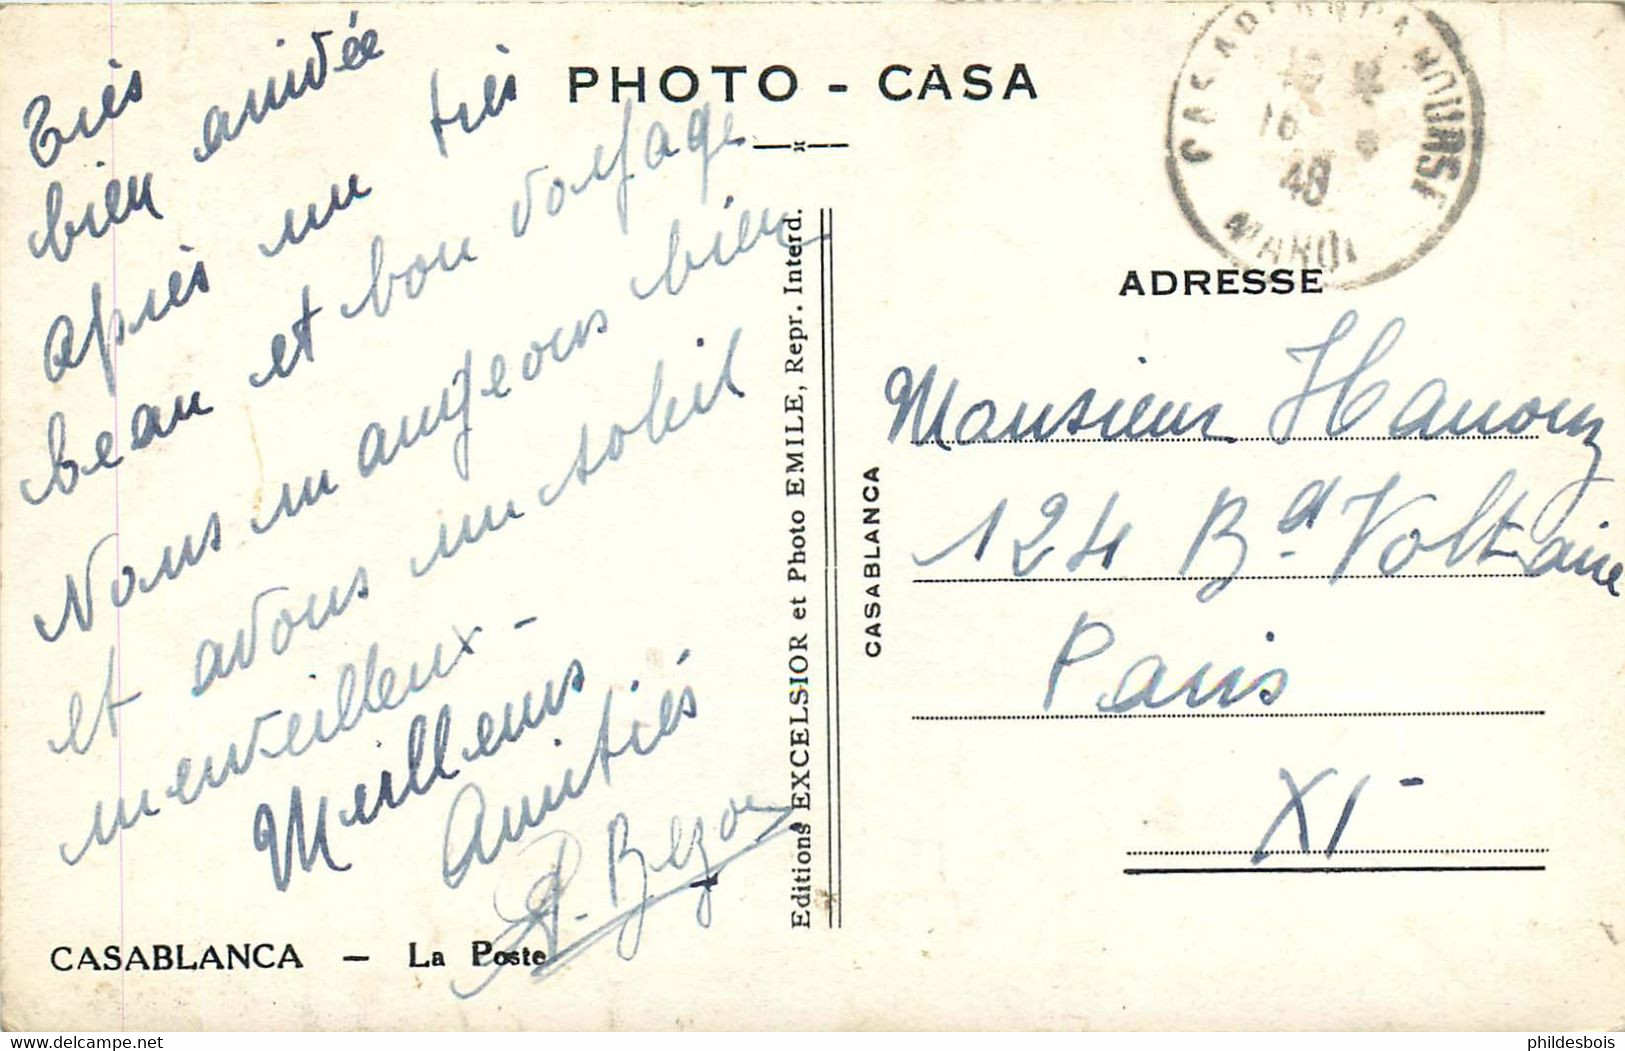 PHOTO - CASA
Très
bien arrivée
après un très
beau et bon voyage
Nous mangeons bien
et avons un soleil
merveilleux -
Meilleurs
Amitiés
CASABLANCA — La Poste
Editions EXCELSIOR et Photo EMILE, Repr. Interd.
CASABLANCA
BOURSE
MAROC
16
48
ADRESSE
Monsieur
124 Bd. Voltaire
Paris
XI-
delcampe.net
phildesbois